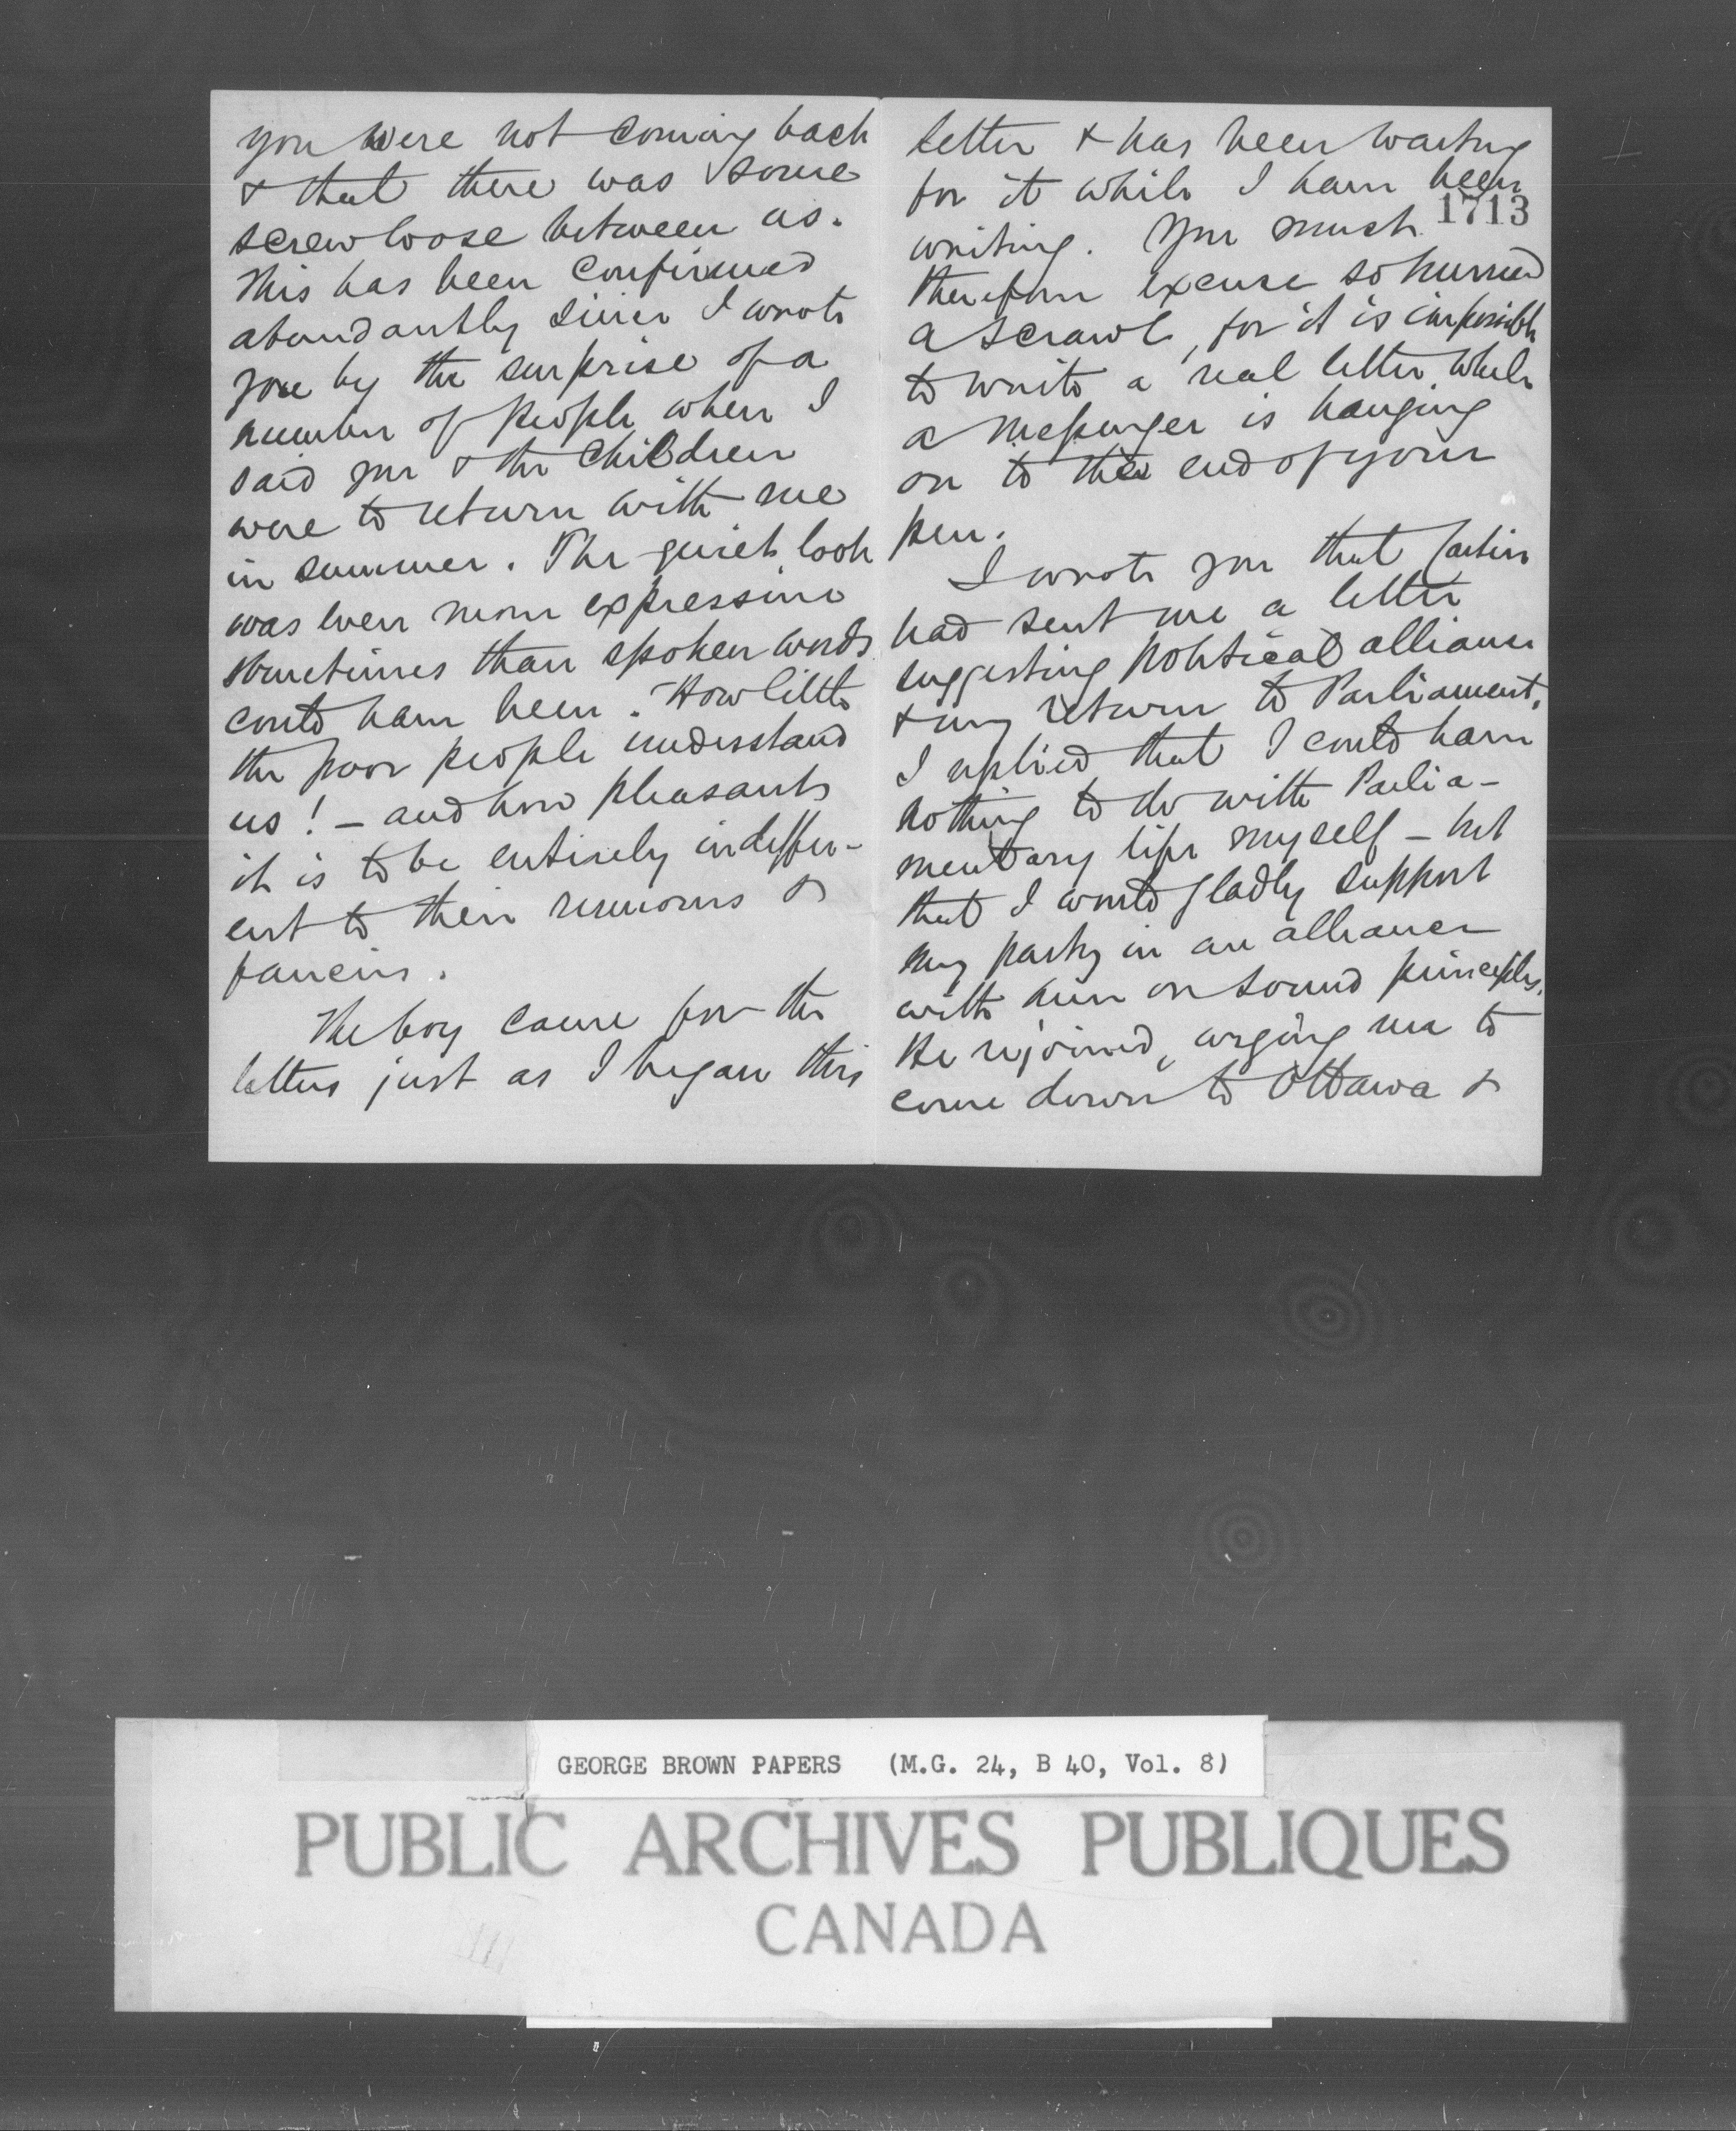 you were not coming back
& that there was some
screw loose between us.
This has been confirmed
abundantly since I wrote
you by the surprise of a
number of people when I
said you & the children
were to return with me
in summer. The quiet look
was even more expressive
sometimes than spoken words
could have been. How little
the poor people understand
us! – and how pleasant
it is to be entirely indiffer-
ent to their rumours &
fancies.
The boy came for the
letters just as I began this
letter & has been waiting
for it while I have been
writing. You must
1713
therefore excuse so hurried
a scrawl, for it is impossible
to write a real letter while
a messenger is hanging
on to the end of your
pen.
I wrote you that Cartier
had sent me a letter
suggesting political alliance
& my return to Parliament.
I replied that I could have
nothing to do with Parlia-
mentary life myself – but
that I would gladly support
my party in an alliance
with him on sound principles.
He rejoined, urging me to
come down to Ottawa &
GEORGE BROWN PAPERS (M.G. 24, B 40, Vol. 8)
PUBLIC ARCHIVES PUBLIQUES
CANADA